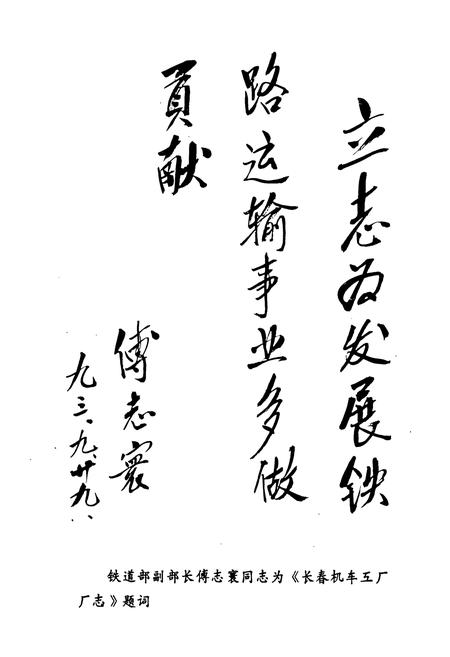 立志为发展铁
路运输事业多做
贡献
傅志寰
九三、九、廿九、
铁道部副部长傅志寰同志为《长春机车五厂
厂志》题词